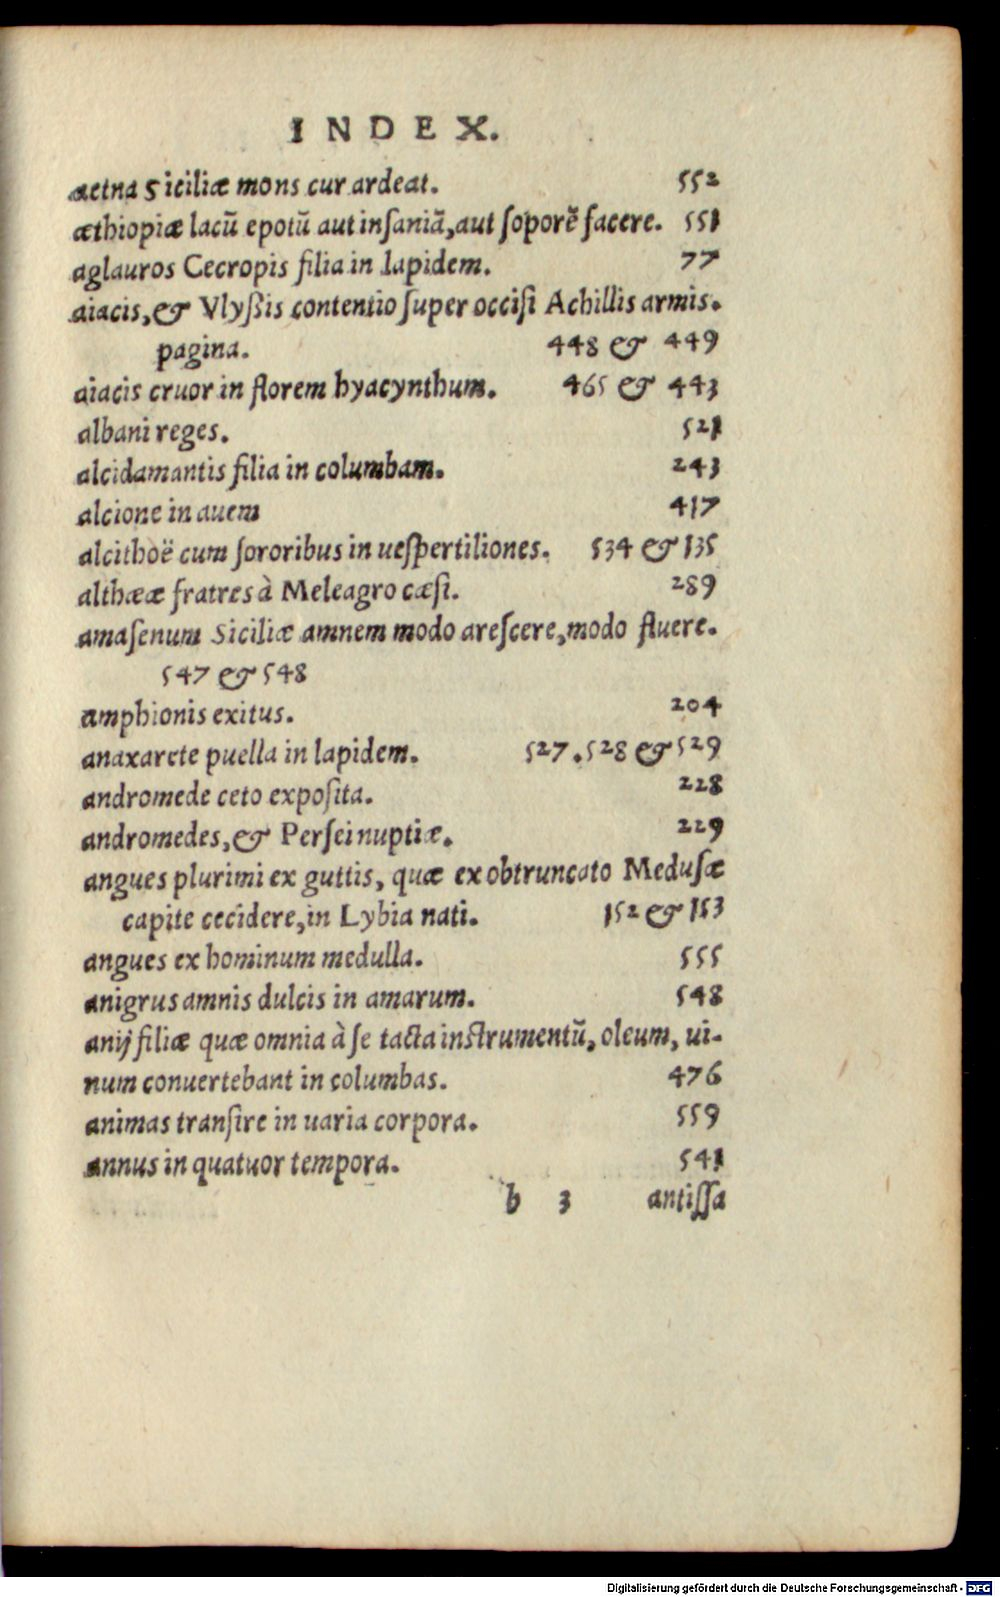 INDEX.
aetna Siciliæ mons cur ardeat. 552
æthiopiæ lacũ epotũ aut inſaniã, aut ſoporẽ facere. 551
aglauros Cecropis filia in lapidem. 77
aiacis, & Vlyßis contentio ſuper occiſi Achillis armis.
pagina. 448 & 449
aiacis cruor in florem hyacynthum. 465 & 443
albani reges. 521
alcidamantis filia in columbam. 243
alcione in auem 417
alcithoë cum ſororibus in ueſpertiliones. 534 & 135
althææ fratres à Meleagro cæſi. 289
amaſenum Siciliæ amnem modo areſcere, modo fluere.
547 & 548
amphionis exitus. 204
anaxarete puella in lapidem. 527. 528 & 529
andromede ceto expoſita. 228
andromedes, & Perſei nuptiæ. 229
angues plurimi ex guttis, quæ ex obtruncato Meduſæ
capite cecidere, in Lybia nati. 152 & 153
angues ex hominum medulla. 555
anigrus amnis dulcis in amarum. 548
anij filiæ quæ omnia à ſe tacta inſtrumentũ, oleum, ui-
num conuertebant in columbas. 476
animas tranſire in uaria corpora. 559
annus in quatuor tempora. 541
b 3 antiſſa
Digitalisierung gefördert durch die Deutsche Forschungsgemeinschaft - DFG